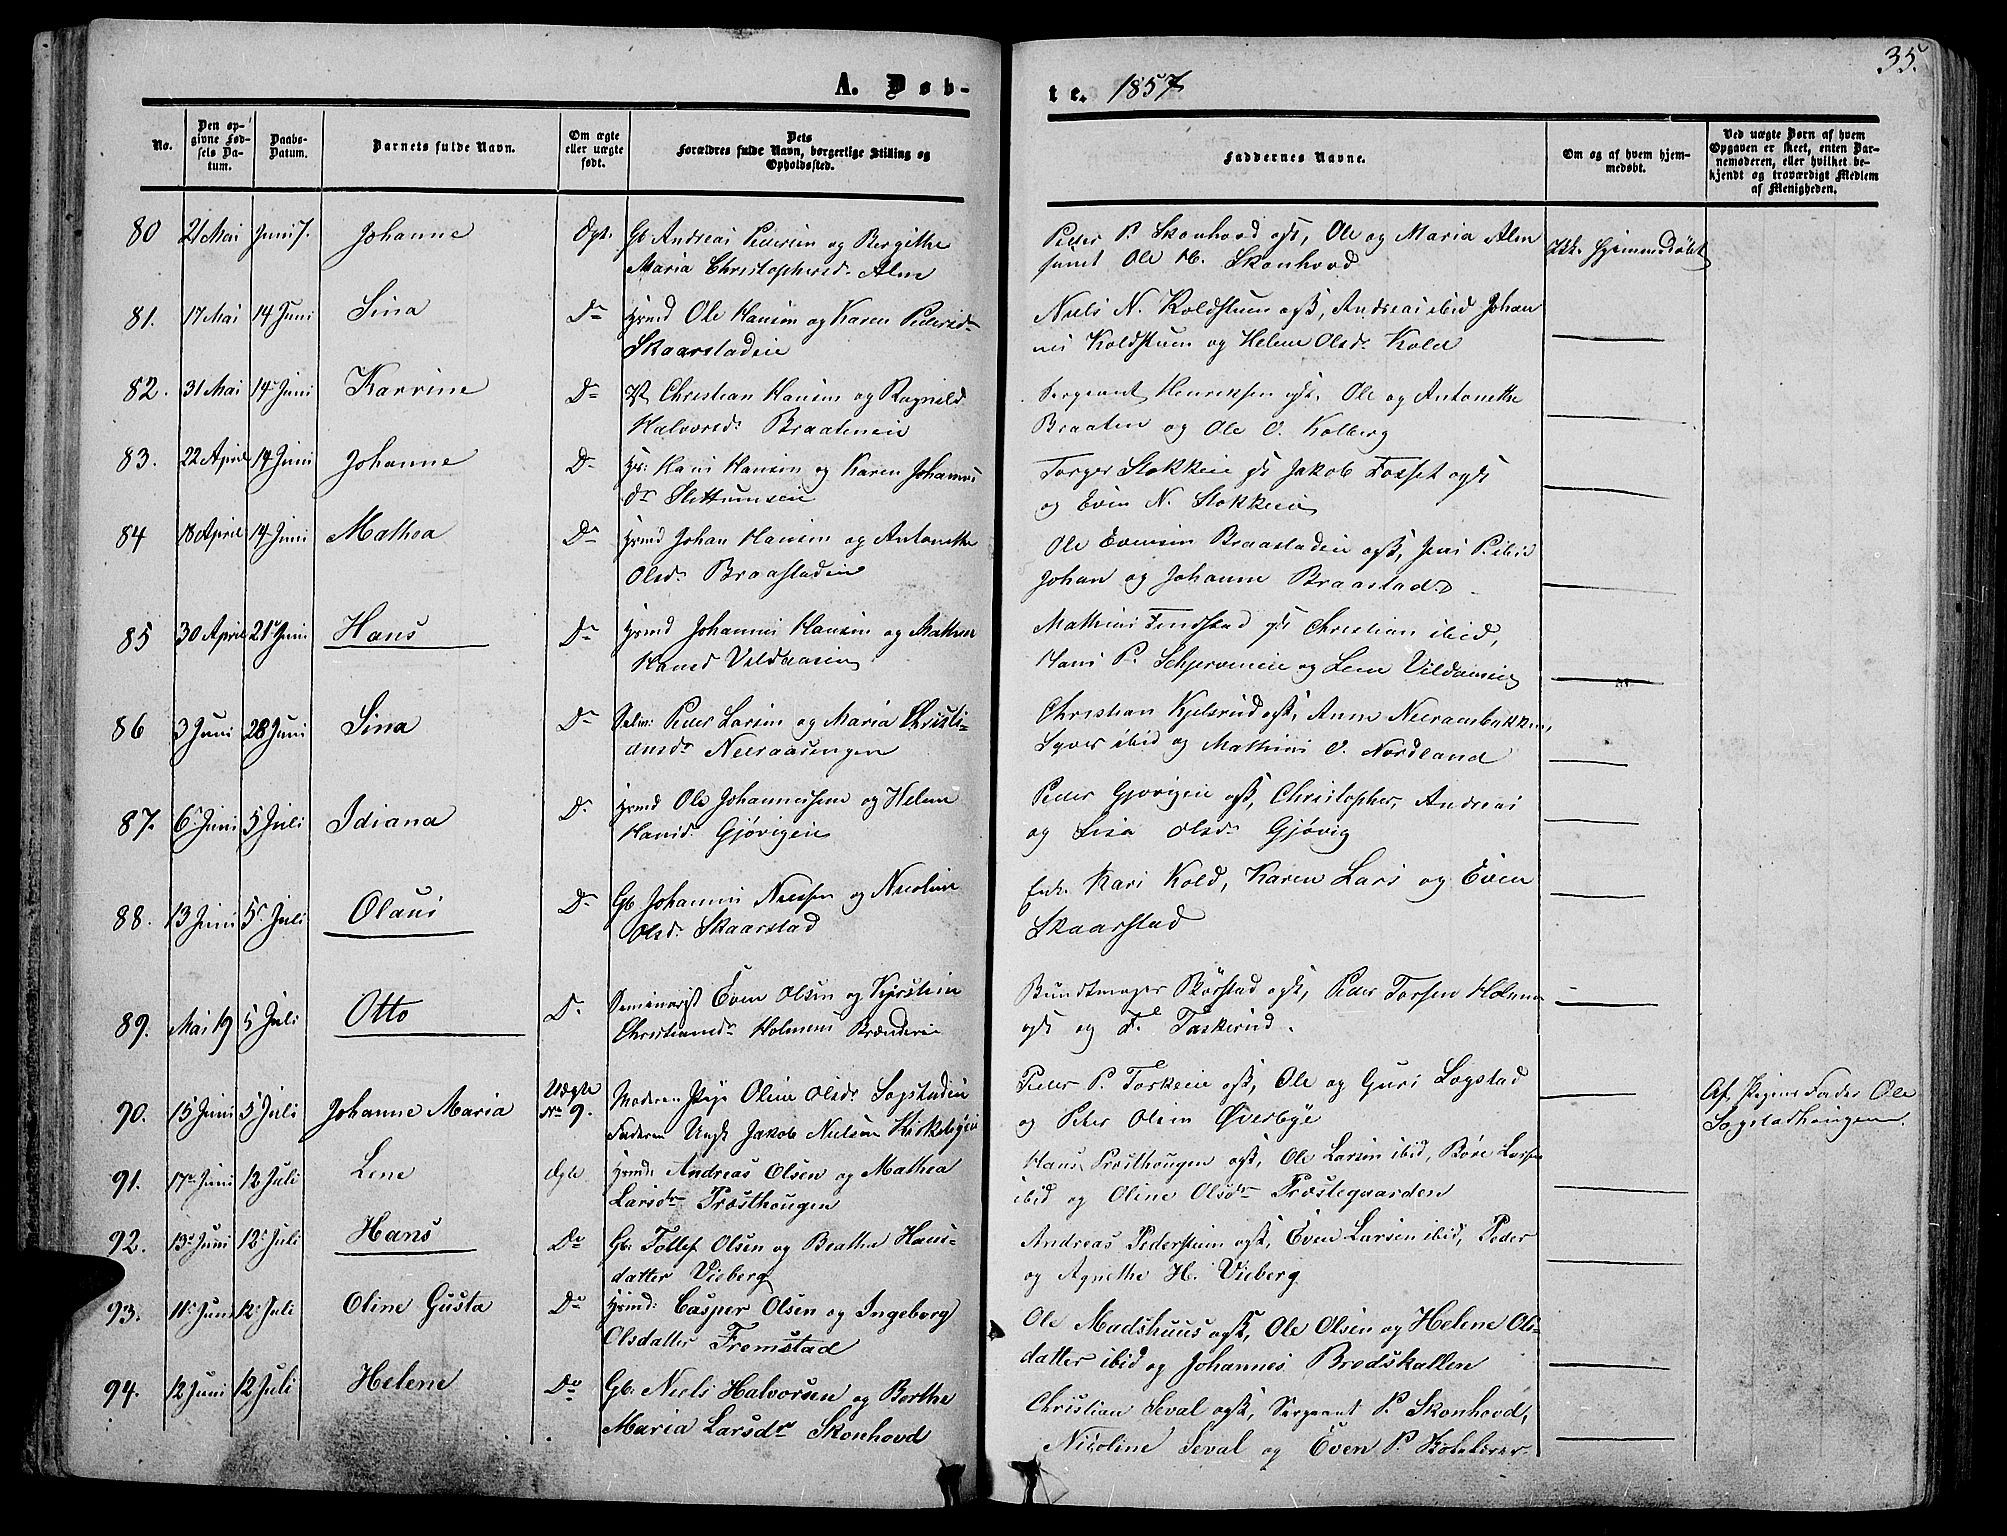 35.
A. Døb-
te. 1857
No.
Den op-
givne Fød-
sels Da-
tum.
Daabs-
Datum.
Barnets fulde Navn.
Om ægte
eller uægte
født.
Dets
Forældres fulde Navn, borgerlige Stilling og
Opholdssted.
Faddernes Navne.
Om og af hvem hjem-
medøbt.
Ved uægte Børn af hvem
Opgaven er skeet, enten Bar-
nemoderen, eller hvilket be-
kjendt og troværdigt Medlem
af Menigheden.
80 21 Mai Juni 7. Johanne Ægt. Gb Andreas Pedersen og Bergithe
Maria Christophersd. Alm
Peder P. Skonhovd ogs, Ole og Maria Alm
samt Ole Skonhovd
Ikke Hjemmedøbt
81. 17 Mai 14 Juni Sina Do Hsmd Ole Hansen og Karen Pedersd
Skaarstadeie
Niels N. Koldstuen ogs, Andreas ibid Johan
nes Koldstuen og Helene Olsdr Kold
82. 31 Mai 14 Juni Karrine Do Christian Hansen og Ragnild
Halvorsdr Braateneie
Sergeant Henriksen ogs. Ole og Antonette
Braaten og Ole O. Kolberg
83. 22 April 14 Juni Johanne Do Hans Hansen og Karen Johannes
dr
Torger Stokkeie gs Jakob Fosset ogs
og Even N. Stokkeie
84 18 April 14 Juni Mathea Do Hsmd Johan Hansen og Antonette
Olsdr Braastadeie
Ole Evensen Braastadeie ogs, Jens P. ibid
Johan og Johanne Braastad
85 30 April 21 Juni Hans Do Hsmd Johannes Hansen og Mathea
Hansd
Mathias Findstad gs Christian ibid,
Hans P. og Lene
86 3 Juni 28 Juni Sina Do Peder Larsen og Maria Christi-
ansdr Neeraasengen
Christian Kjelsrud ogs, Anne Neeraasbakken,
Syver ibid og Mathias O. Nordland
87. 6 Juni 5 Juli Idiana Do Hsmd Ole Johannessen og Helene
Hansdr Gjøvigeie
Peder Gjøvigeie ogs, Christopher, Andreas
og Lisa Olsdr Gjøvig
88. 13 Juni 5 Juli Olaus Do Gb Johannes Nielsen og Nicoline
Olsdr Skaarstad
Enk. Kari Kold, Karen Lars og Even
Skaarstad
89. Mai 19 5 Juli Otto Do Seminarist Even Olsen og Kjerstine
Christiansdr Holmens Brænderie
Bundtmager Skørstad ogs, Peder Torsen Holmen
ogs og F. Taskerud.
90. 15 Juni 5 Juli Johanne Maria Uægte
No 9. Moderen Pige Oline Olsdr Sogstadeie
Faderen Ungk Jakob Nielsen
Peder P. Taskeie ogs, Ole og Guri Sogstad
og Peter Olsen Øverbye
Af Pigens Fader Ole
Sogstadhougen.
91. 17 Juni 12 Juli Lene Ægte Hsmd: Andreas Olsen og Mathea
Larsdr Præsthougen
Hans Præsthougen ogs, Ole Larsen ibid, Børe Larsen
ibid og Oline Olsdr Præstegaarden
92. 13 Juni 12 Juli Hans Do Gb. Tollef Olsen og Beathe Hans-
datter Vieberg
Andreas Pederstuen ogs, Even Larsen ibid, Peder
og Agnethe H. Vieberg
93. 11 Juni 12 Juli Oline Gusta Do Hsmd: Casper Olsen og Ingeborg
Olsdatter Fremstad
Ole Madshuus ogs, Ole Olsen og Helene Ols-
datter ibid og Johannes Bredskallen
94. 12 Juni 12 Juli Helene Do Gb. Niels Halvorsen og Berthe
Maria Larsdr Skonhovd
Christian Seval ogs, Sergeant P. Skonhovd,
Nicoline Seval og Even P.